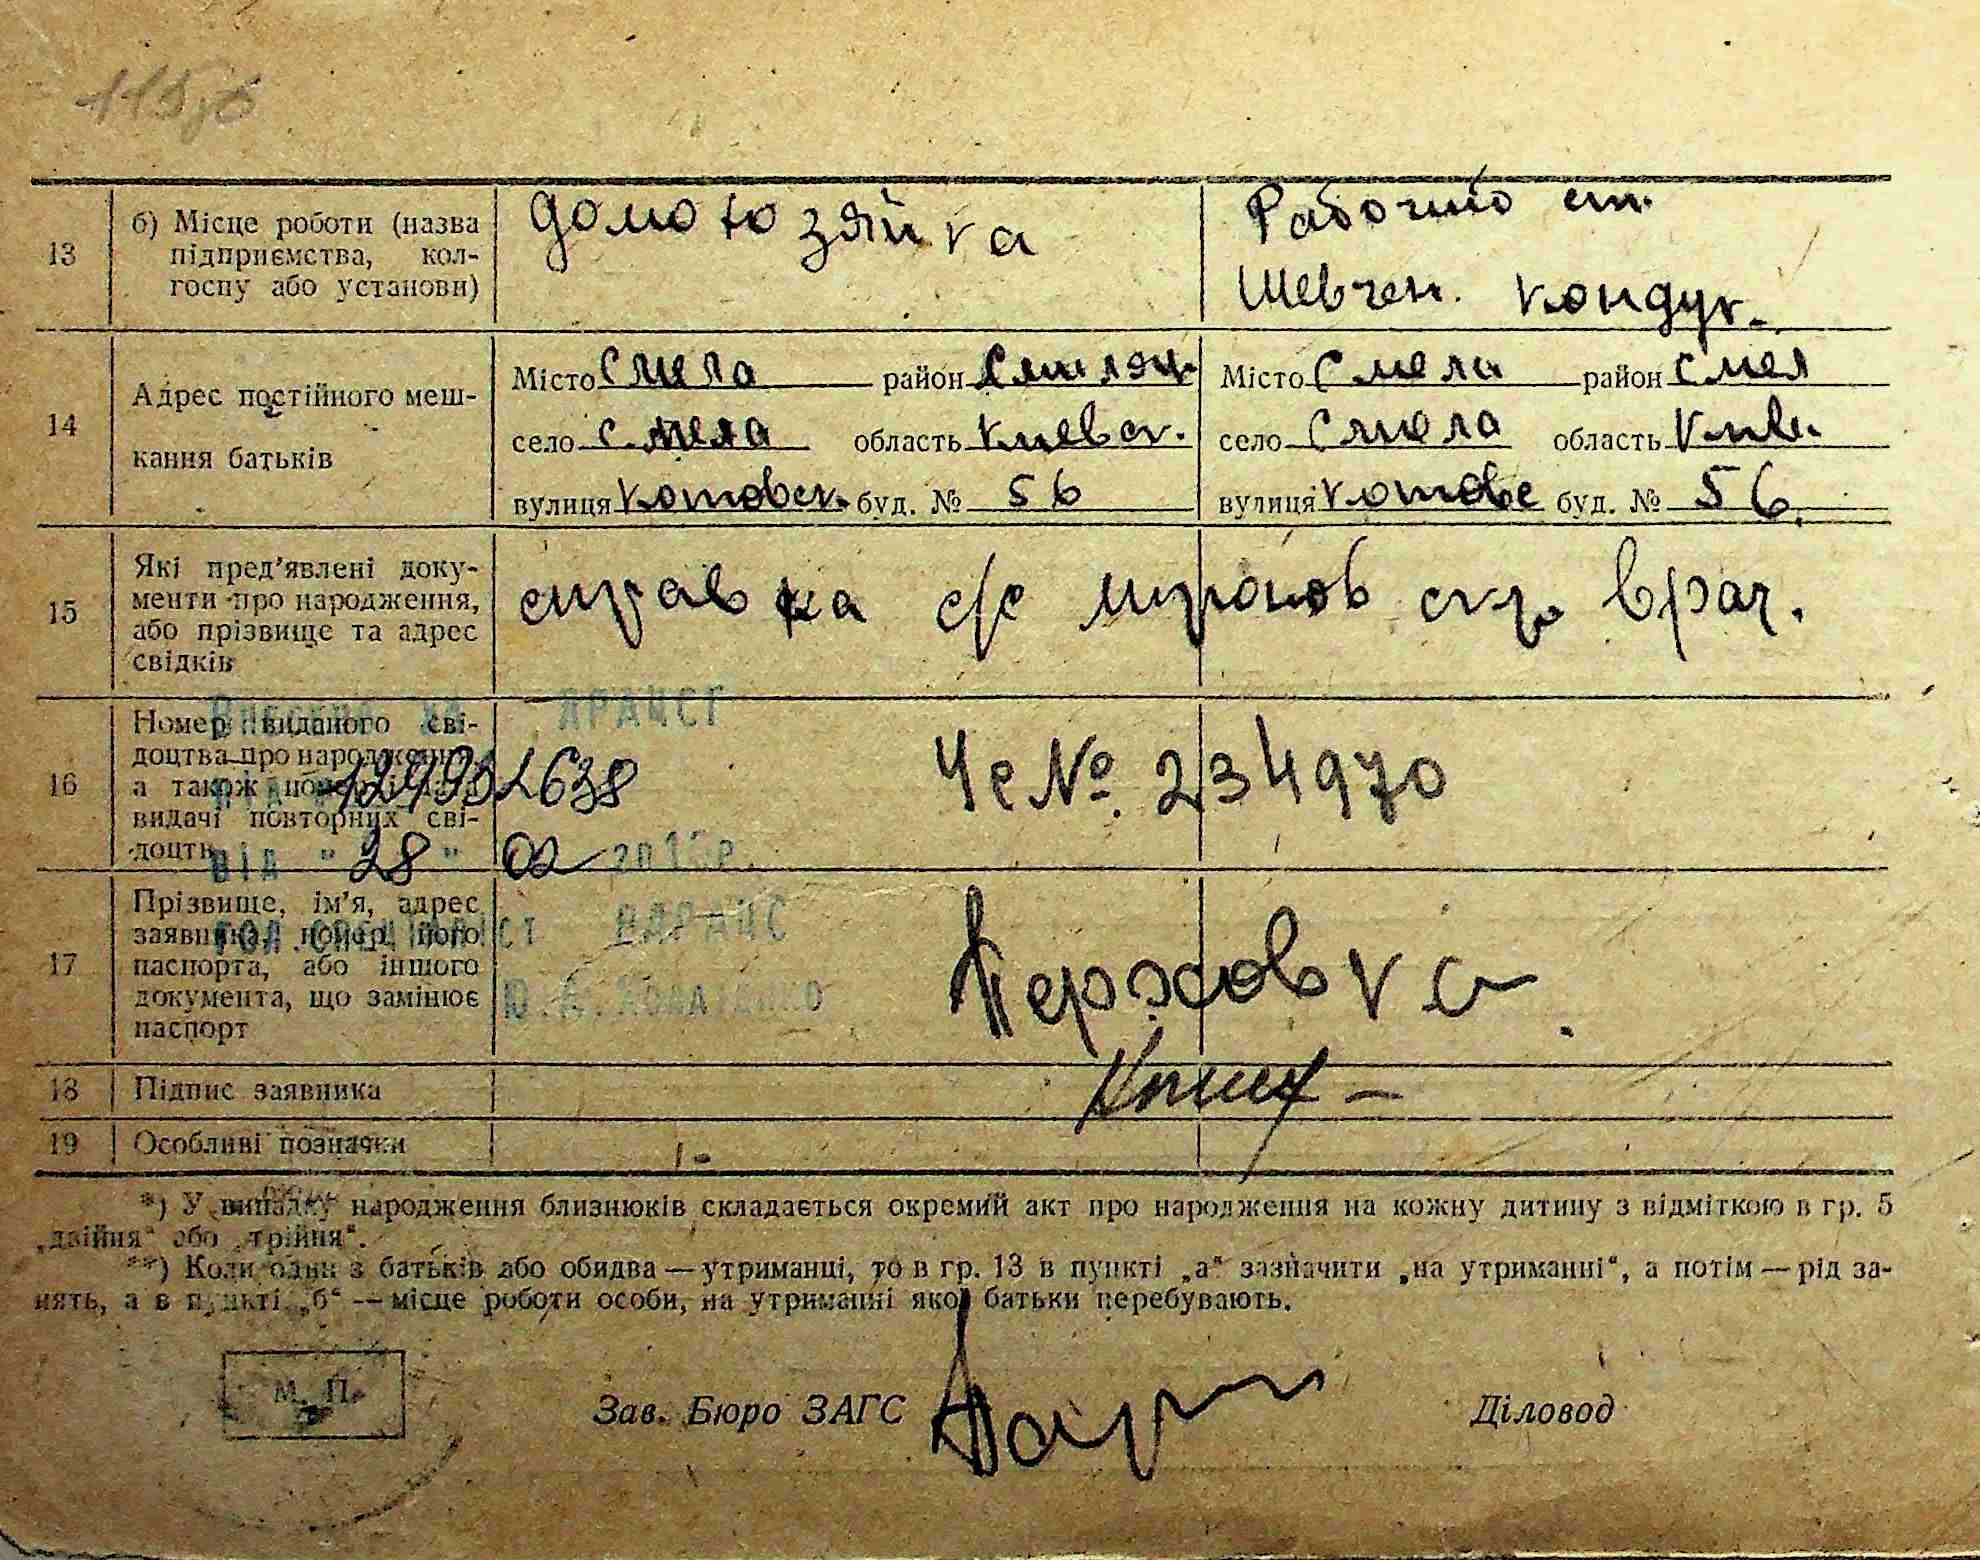 13
б) Місце роботи (назва
підприємства, кол-
госпу або установи)
домохозяйка
Рабочий ст.
Шевчен. кондук.
14
Адрес постійного меш-
кання батьків
Місто Смела район Смелян.
село Смела область Киевск.
вулиця Котовск. буд. № 56
Місто Смела район Смел
село Смела область Киев.
вулиця Котовс буд. № 56
15
Які пред’явлені доку-
менти про народження,
або прізвище та адрес
свідків
справка с/с врач.
16
Номер виданого сві-
доцтва про народження,
а також номер і дата
видачі повторних сві-
доцтв
ДРАЦСГ
Че № 234970
від "28" 02
17
Прізвище, ім’я, адрес
заявника, номер його
паспорта, або іншого
документа, що замінює
паспорт
гол. спеціаліст ВДРАЦС
18
Підпис заявника
19
Особливі позначки
*) У випадку народження близнюків складається окремий акт про народження на кожну дитину з відміткою в гр. 5
„двійня“ або „трійня“.
**) Коли один з батьків або обидва — утриманці, то в гр. 13 в пункті „а“ зазначити „на утриманні“, а потім — рід за-
нять, а в пункті „б“ — місце роботи особи, на утриманні якої батьки перебувають.
М. П.
Зав. Бюро ЗАГС
Діловод